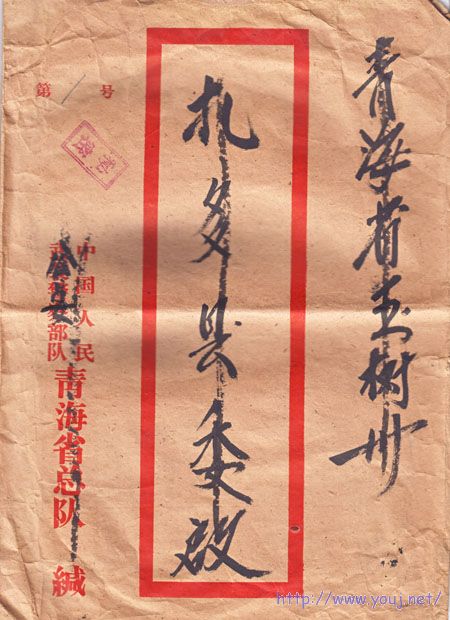 青海省玉树州
扎多县委啟
第1号
中国人民
部队
青海省总队 缄
http://www.youj.net/